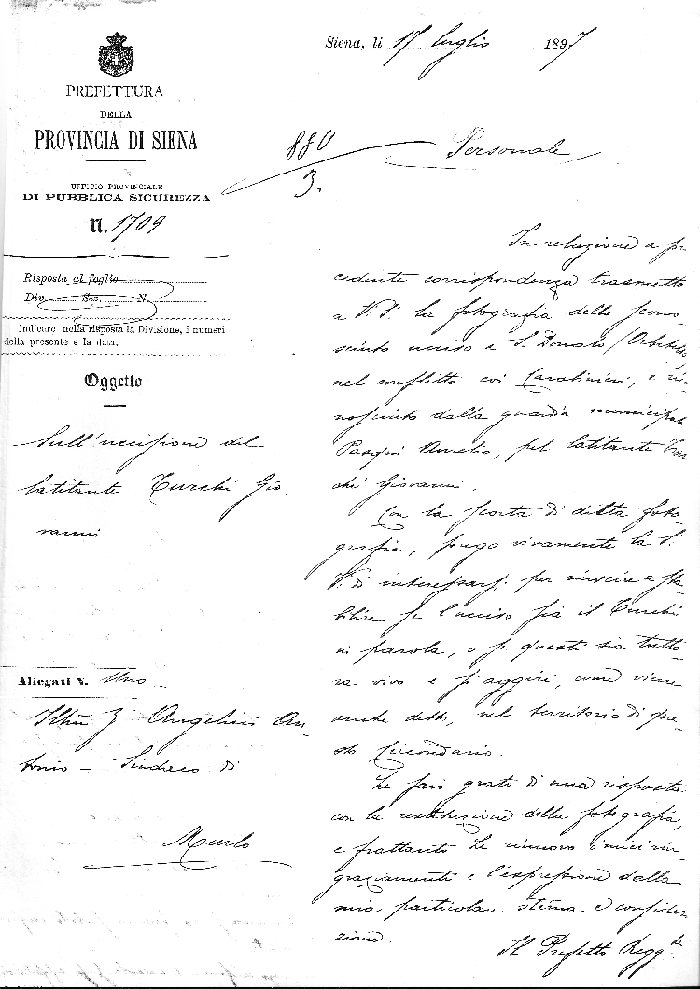 Siena, li 17 luglio 1897
PREFETTURA
DELLA
PROVINCIA DI SIENA
UFFICIO PROVINCIALE
DI PUBBLICA SICUREZZA
N. 1709
880
3.
Personale
Risposta al foglio
Div. Sez. N.
Indicare nella risposta la Divisione, i numeri
della presente e la data.
Oggetto
Sull'uccisione del
latitante Turchi Gio
vanni
Allegati N. Uno
Angelini An-
tonio - Sindaco di
Murlo
In relazione a pre
cedente corrispondenza trasmetto
a V.S. la fotografia dello scono
sciuto ucciso a S. Donato (Orbetello)
nel conflitto coi Carabinieri, e ri
nosciuto dalla guardia municipale
Aurelio, pel latitante Tur
chi Giovanni.
Con la scorta di detta foto
grafia, prego vivamente la S.
V. di interessarsi per riuscire a sta
bilire se l'ucciso sia il Turchi
in parola, o se questi sia tutto
ra vivo e si aggiri, come viene
anche detto, nel territorio di que
sto Circondario.
Le sarò grato di una risposta
con la restituzione della fotografia,
e frattanto Le rinnovo i miei rin
graziamenti e l'espressione della
mia particolar stima e considera
zione.
Il Prefetto Regg.te